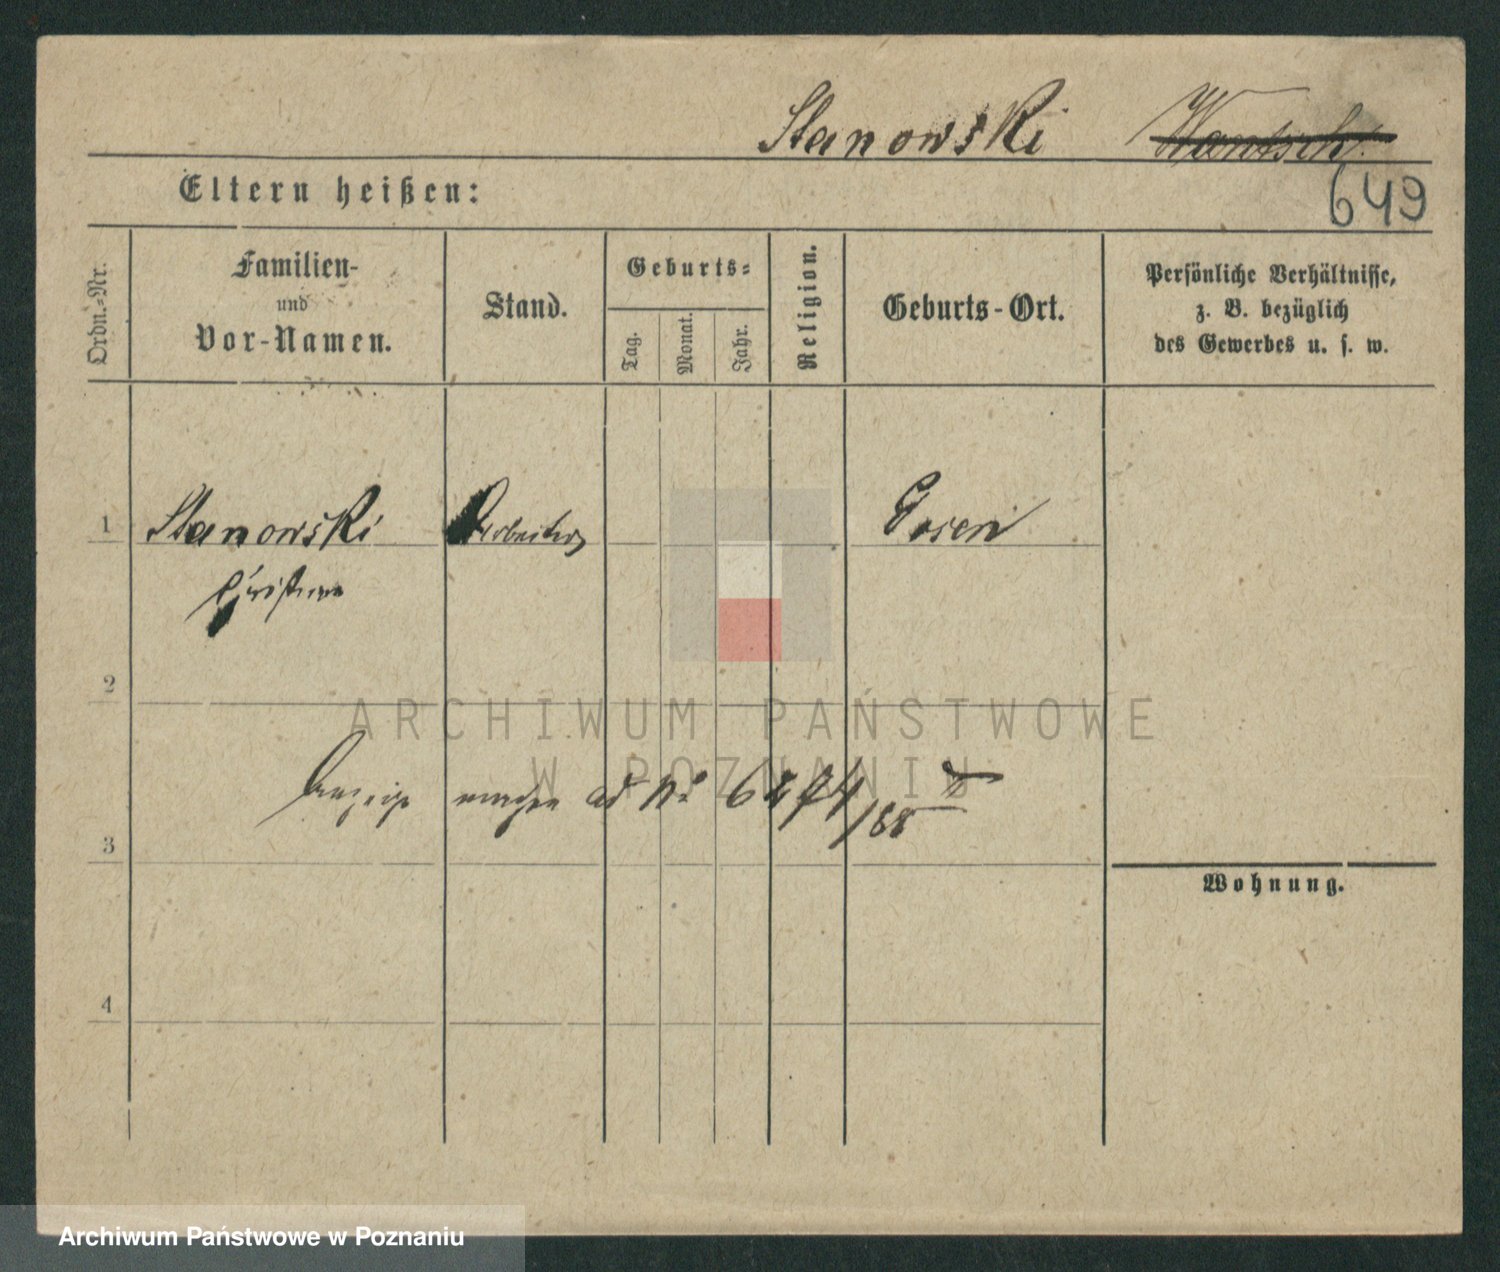 Stanowski Wantsch
649
Eltern heißen:
Ordn.-Nr.
Familien-
und
Vor-Namen.
Stand.
Geburts-
Tag.
Monat.
Jahr.
Religion.
Geburts-Ort.
Persönliche Verhältnisse,
z. B. bezüglich
des Gewerbes u. s. w.
1 Stanowski Arbeiter Posen
2
ARCHIWUM PAŃSTWOWE
W POZNANIU
Anzeige ad No 6274/88
3
Wohnung.
4
Archiwum Państwowe w Poznaniu